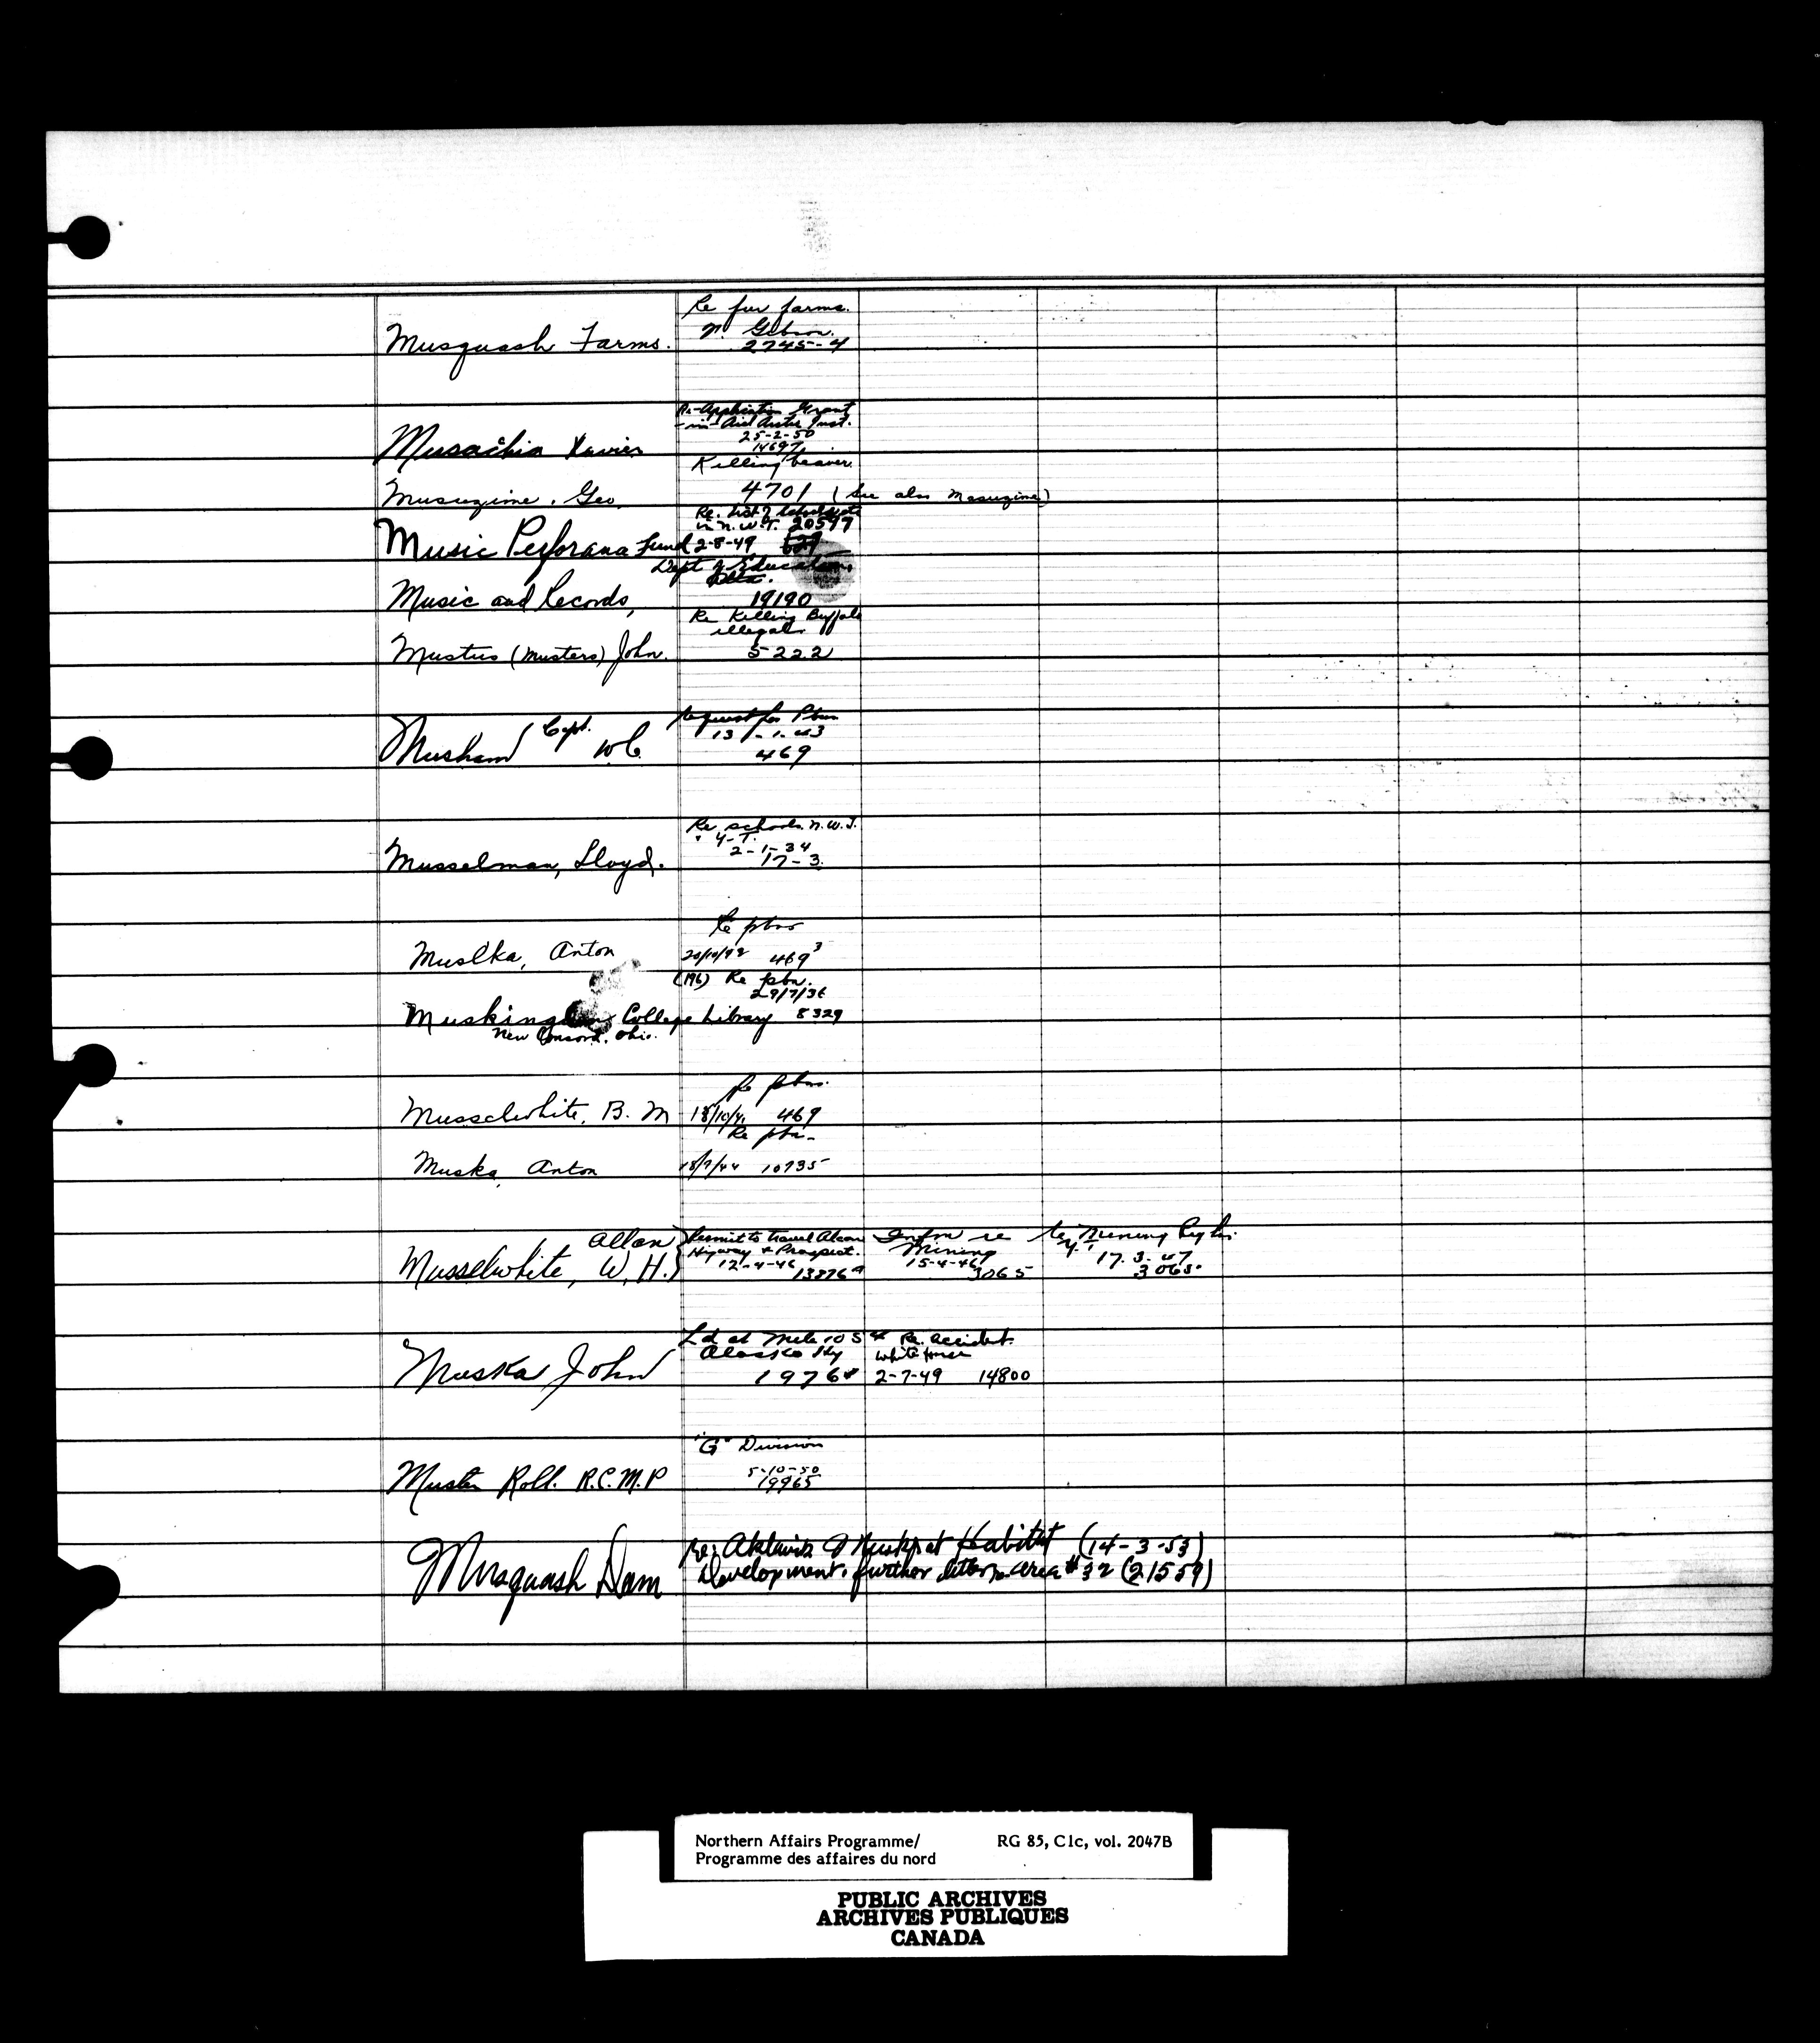 Re fur farms.
N. Gibson.
Musquash Farms. 2745-4
Re-Application Grant
-in-Aid Arctic Inst.
25-2-50
14697
Musachia Xavier
Killing beaver.
Musuzime, Geo. 4701 (See also Masuzine)
Re. List of Schools etc
in N.W.T. 20597
Music Performana Fund 2-8-49
Dept of Education,
Alta.
Music and Records, 19190
Re Killing Buffalo
illegal.
Mustus (Musters) John. 5222
Request for Pbns
13-1-43
Musham Capt. W.C. 469
Re schools. N.W.T.
" Y-T.
2-1-34
Musselman, Lloyd. 17-3.
Re pbns
Muslka, Anton 469³
(196) Re pbn.
29/7/36
Muskingum College Library 8329
New Concord, Ohio.
Re pbns.
Musselwhite, B. M 18/10/41 469
Re pbn-
Muska, Anton 18/7/44 10735
Allan
Musselwhite, W. H.
Permit to travel Alcan
Higway & Prospect.
12-4-46
13376
Infm re
Mining
15-4-46
3065
Mining
17.3.47
3065.
Ld at Mile 1054
Alaska Hy
Muska John 1976
Re. accident.
White horse
2-7-49 14800
"G" Division
5-10-50
Muster Roll. R.C.M.P 19965
Musquash Dam
Re: Aklavik Muskrat Habitat (14-3-53)
Development. further area #32 (21559)
Northern Affairs Programme/ RG 85, C1c, vol. 2047B
Programme des affaires du nord
PUBLIC ARCHIVES
ARCHIVES PUBLIQUES
CANADA